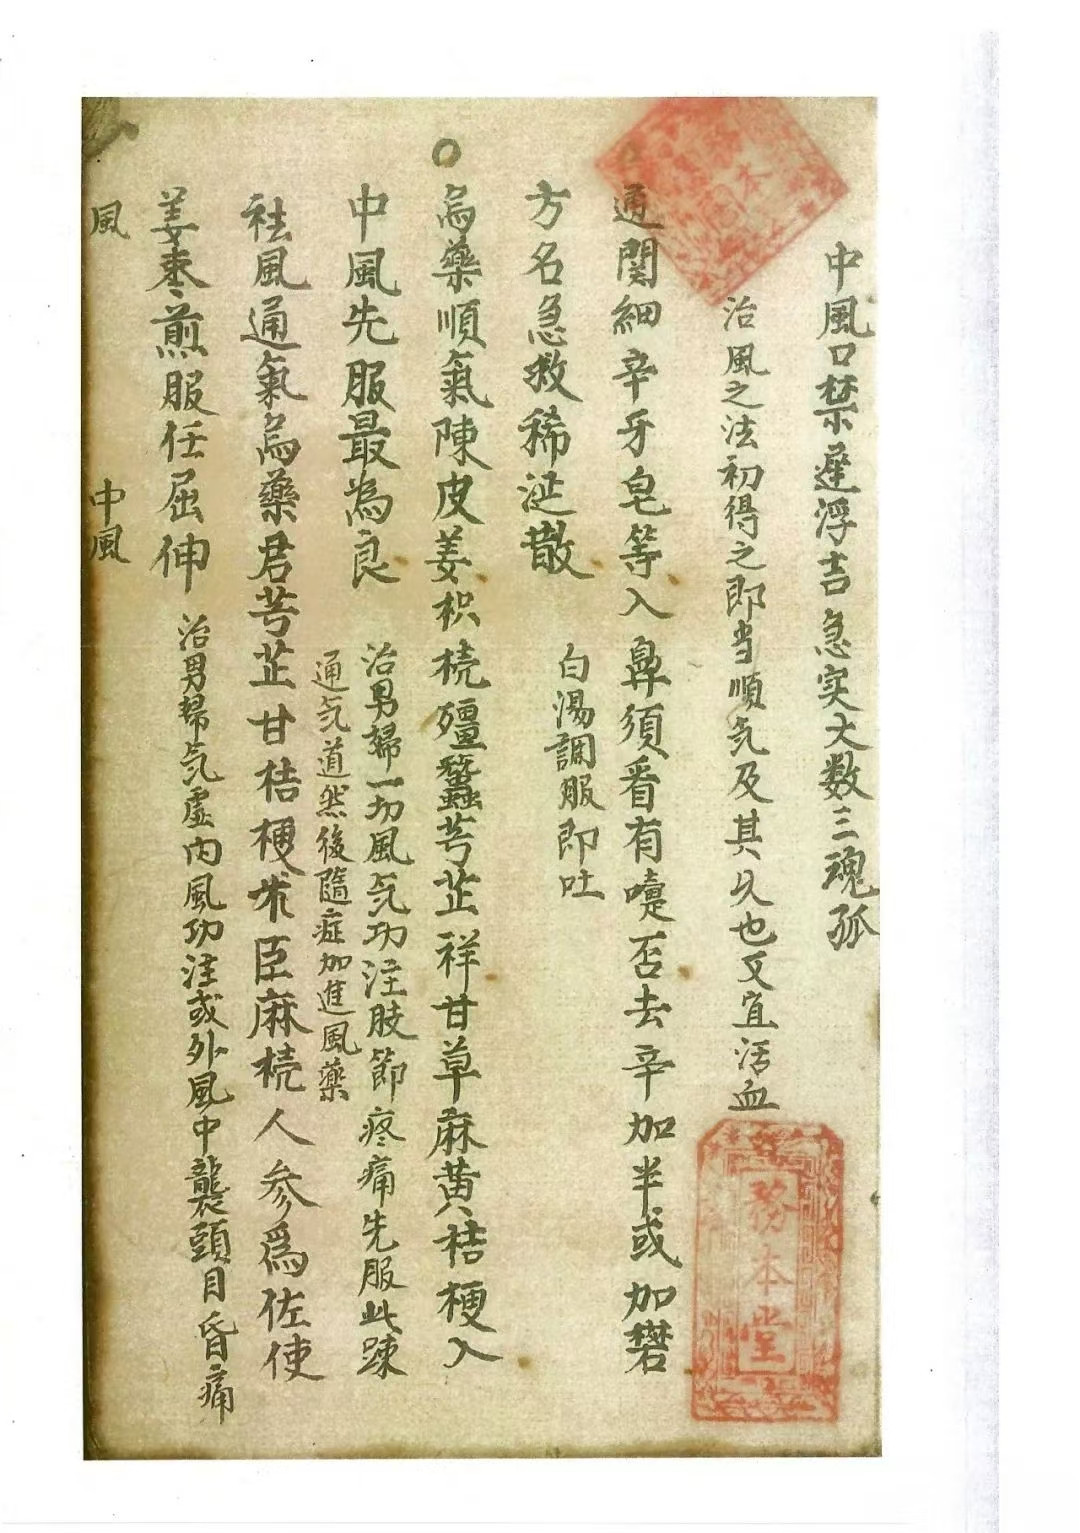 中風口禁遲浮吉急实大数三魂孤
治風之法初得之即当順気及其久也又宜活血
通関細辛牙皂等入鼻須看有嚏否去辛加半或加礬
方名急救稀涎散
白湯調服即吐
烏藥順氣陳皮姜枳梹殭蠶芎芷祥甘草麻黄桔梗入
中風先服最為良
治男婦一切風気功注肢節疼痛先服此踈
通気道然後隨症加進風藥
祛風通氣烏藥君芎芷甘桔梗朮臣麻梹人参爲佐使
姜枣煎服任屈伸
治男婦気虚内風功注或外風中襲頭目昏痛
風
中風
務本堂